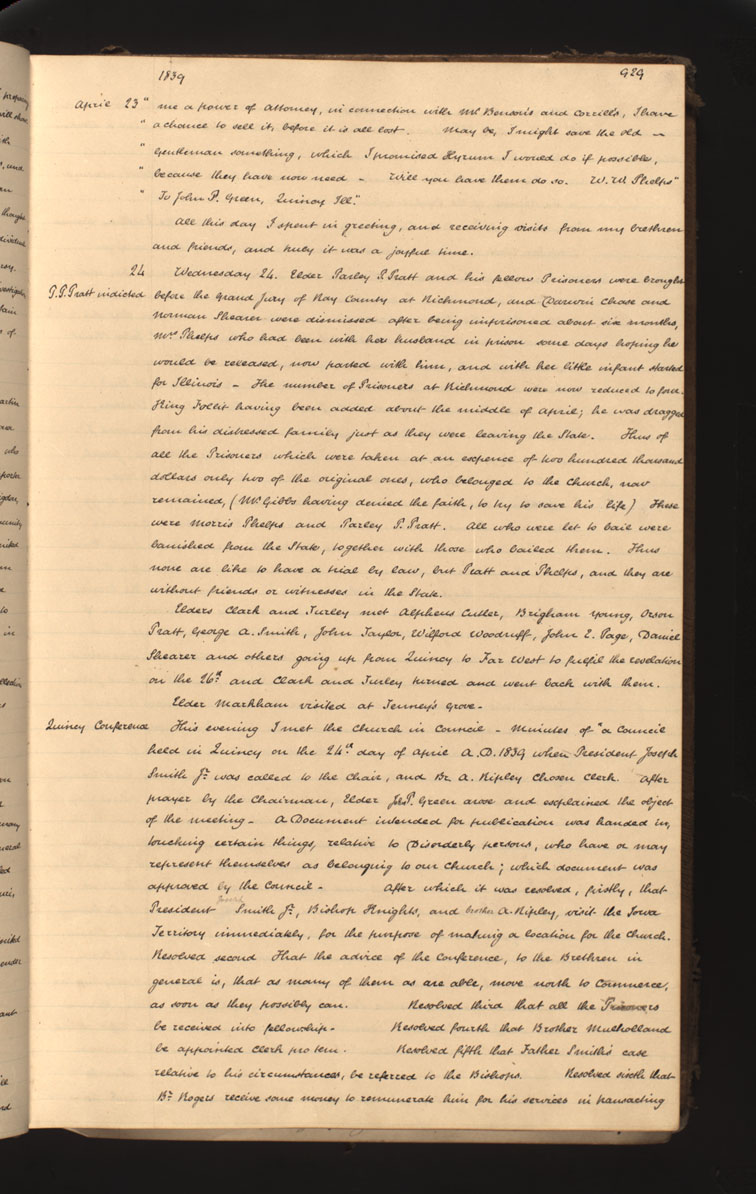 1839 929
April 23 " me a power of Attorney, in connection with Mr Benson's and Corrill's, I have
" a chance to sell it, before it is all lost. May be, I might save the old –
" Gentleman something, which I promised Hyrum I would do if possible,
" because they have now need – Will you have them do so. W. W. Phelps"
" To John P. Green, Quincy Ill."
All this day I spent in greeting, and receiving visits from my brethren
and friends, and truly it was a joyful time.
24 Wednesday 24. Elder Parley P. Pratt and his fellow Prisoners were brought
P. P. Pratt indicted before the grand Jury of Ray County at Richmond, and Darwin Chase and
Norman Shearer were dismissed after being imprisoned about six months,
Mrs Phelps who had been with her husband in prison some days hoping he
would be released, now parted with him, and with her little infant started
for Illinois – The number of Prisoners at Richmond were now reduced to four.
King Follit having been added about the middle of April; he was dragged
from his distressed family just as they were leaving the State. Thus of
all the Prisoners which were taken at an expence of two hundred thousand
dollars only two of the original ones, who belonged to the Church, now
remained, (Mr Gibbs having denied the faith, to try to save his life) These
were Morris Phelps and Parley P. Pratt. All who were let to bail were
banished from the State, together with those who bailed them. Thus
none are like to have a trial by law, but Pratt and Phelps, and they are
without friends or witnesses in the State.
Elders Clark and Turley met Alpheus Cutler, Brigham Young, Orson
Pratt, George A. Smith, John Taylor, Wilford Woodruff, John E. Page, Daniel
Shearer and others going up from Quincy to Far West to fulfil the revelation
on the 26th and Clark and Turley turned and went back with them.
Elder Markham visited at Tenney's Grove –
Quincy Conference This evening I met the Church in Council – Minutes of "a Council
held in Quincy on the 24th day of April A.D. 1839 when President Joseph
Smith Jr was called to the Chair, and Br. A. Ripley Chosen Clerk. After
prayer by the Chairman, Elder Jno P. Green arose and explained the object
of the meeting – A Document intended for publication was handed in,
touching certain things, relative to Disorderly persons, who have or may
represent themselves as belonging to our Church; which document was
approved by the Council – After which it was resolved, firstly, that
President Joseph Smith Jr, Bishop Knights, and brother A. Ripley, visit the Iowa
Territory immediately, for the purpose of making a location for the Church.
Resolved second That the advice of the Conference, to the Brethren in
general is, that as many of them as are able, move north to Commerce,
as soon as they possibly can. Resolved third that all the Prisoners
be received into fellowship – Resolved fourth that Brother Mulholland
be appointed Clerk pro tem. Resolved fifth that Father Smith's case
relative to his circumstances, be referred to the Bishops. Resolved sixth that
Br. Rogers receive some money to remunerate him for his services in transacting